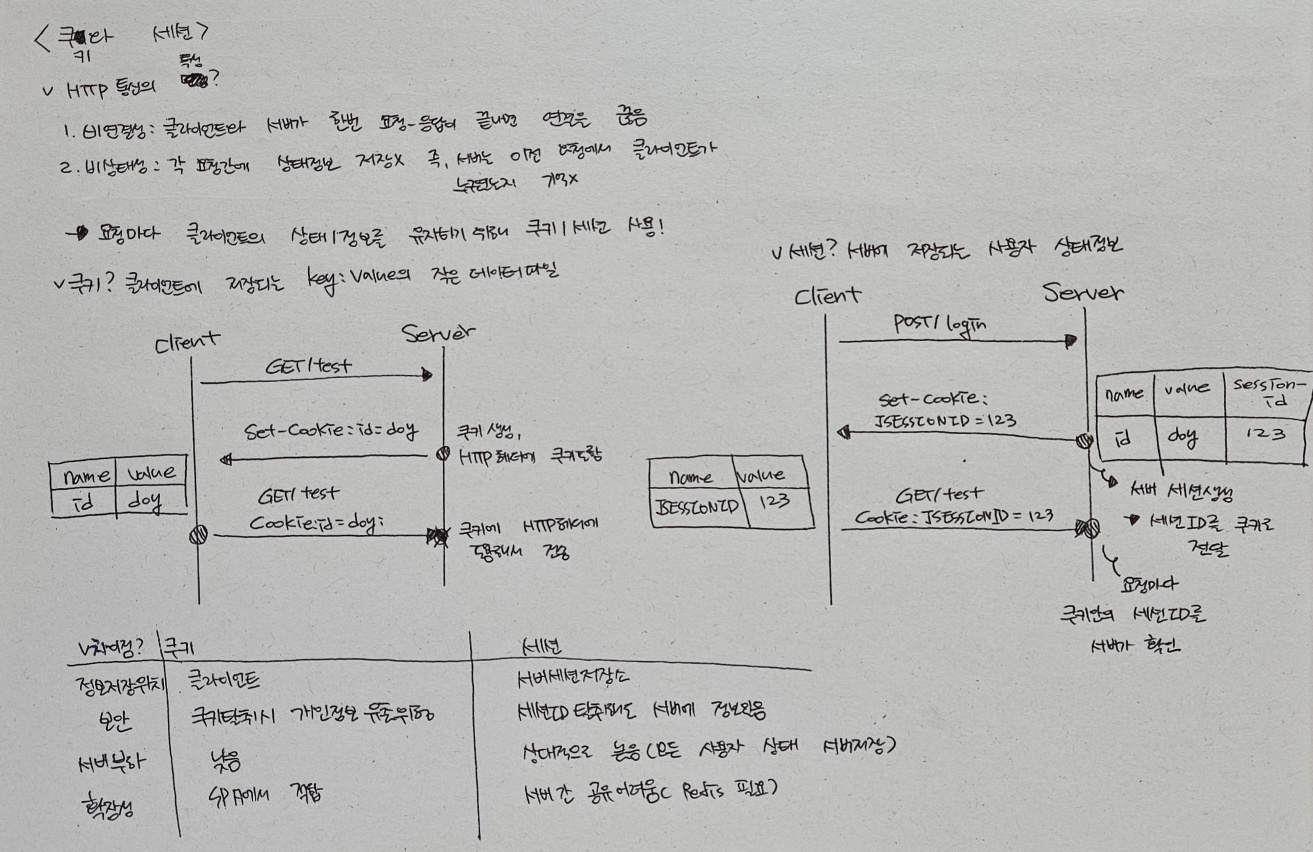 <쿠키와 세션>
✓ HTTP 통신의 특성?
1. 비연결성: 클라이언트와 서버가 한번 요청-응답이 끝나면 연결을 끊음
2. 비상태성: 각 요청간에 상태정보 저장X 즉, 서버는 이전 요청에서 클라이언트가
누구였는지 기억X
→ 요청마다 클라이언트의 상태/정보를 유지하기 위해 쿠키/세션 사용!
✓ 쿠키? 클라이언트에 저장되는 key:value의 작은 데이터파일
Client Server
GET/test
Set-Cookie:id=doy
쿠키 생성,
HTTP 헤더에 쿠키포함
name value
id doy
GET/test
Cookie:id=doy;
쿠키에 HTTP헤더에
포함해서 전송
✓ 세션? 서버에 저장되는 사용자 상태정보
Client Server
POST/login
Set-Cookie:
JSESSIONID=123
name value session-
id
id doy 123
서버 세션생성
→ 세션ID를 쿠키로
전달
name value
JSESSIONID 123
GET/test
Cookie: JSESSIONID=123
요청마다
쿠키안의 세션ID를
서버가 확인
✓차이점? 쿠키 세션
정보저장위치 클라이언트 서버세션저장소
보안 쿠키탈취시 개인정보 유출위험 세션ID 탈취해도 서버에 정보있음
서버부하 낮음 상대적으로 높음(모든 사용자 상태 서버저장)
확장성 SPA에서 적합 서버 간 공유어려움( Redis 필요)